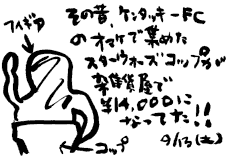 フィギア
その昔、ケンタッキーFC
のオマケで集めた
スターウォーズコップが
雑貨屋で
¥14,000に
なってた!!
9/13(土)
コップ